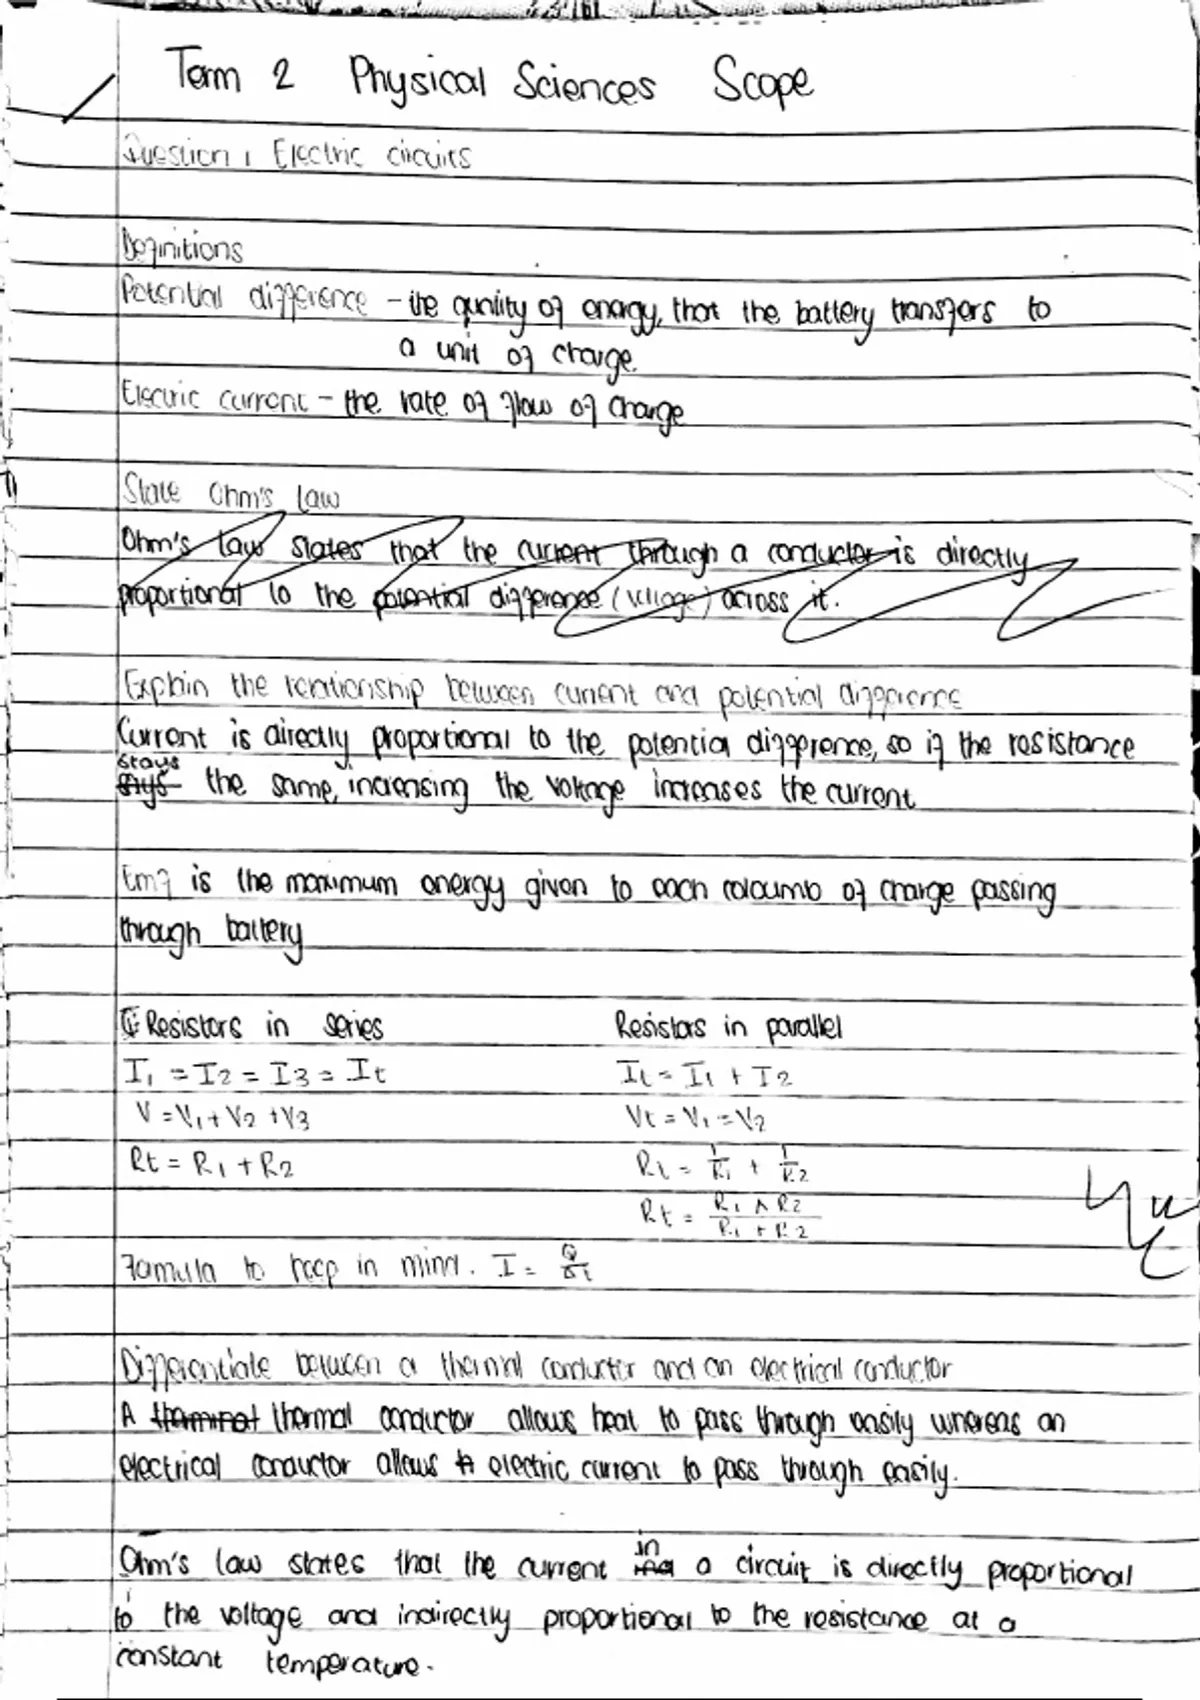 Term 2 Physical Sciences Scope
Question 1 Electric circuits
Definitions
Potential difference - the quality of energy, that the battery transfers to
a unit of charge.
Electric current - the rate of flow of charge
State Ohm's Law
Ohm's law states that the current through a conductor is directly
proportional to the potential difference (voltage) across it.
Explain the relationship between current and potential difference
Current is directly proportional to the potential difference, so if the resistance
stays
the same, increasing the voltage increases the current
Emf is the maximum energy given to each coloumb of charge passing
through battery
Resistors in series Resistors in parallel
I1 = I2 = I3 = It It = I1 + I2
V = V1 + V2 + V3 Vt = V1 = V2
Rt = R1 + R2 Rt = 1/R1 + 1/R2
Rt = R1 × R2 / R1 + R2
Formula to keep in mind. I = Q/Δt
Differentiate between a thermal conductor and an electrical conductor
A thermal conductor allows heat to pass through easily whereas an
electrical conductor allows electric current to pass through easily.
Ohm's law states that the current in a circuit is directly proportional
to the voltage and indirectly proportional to the resistance at a
constant temperature.